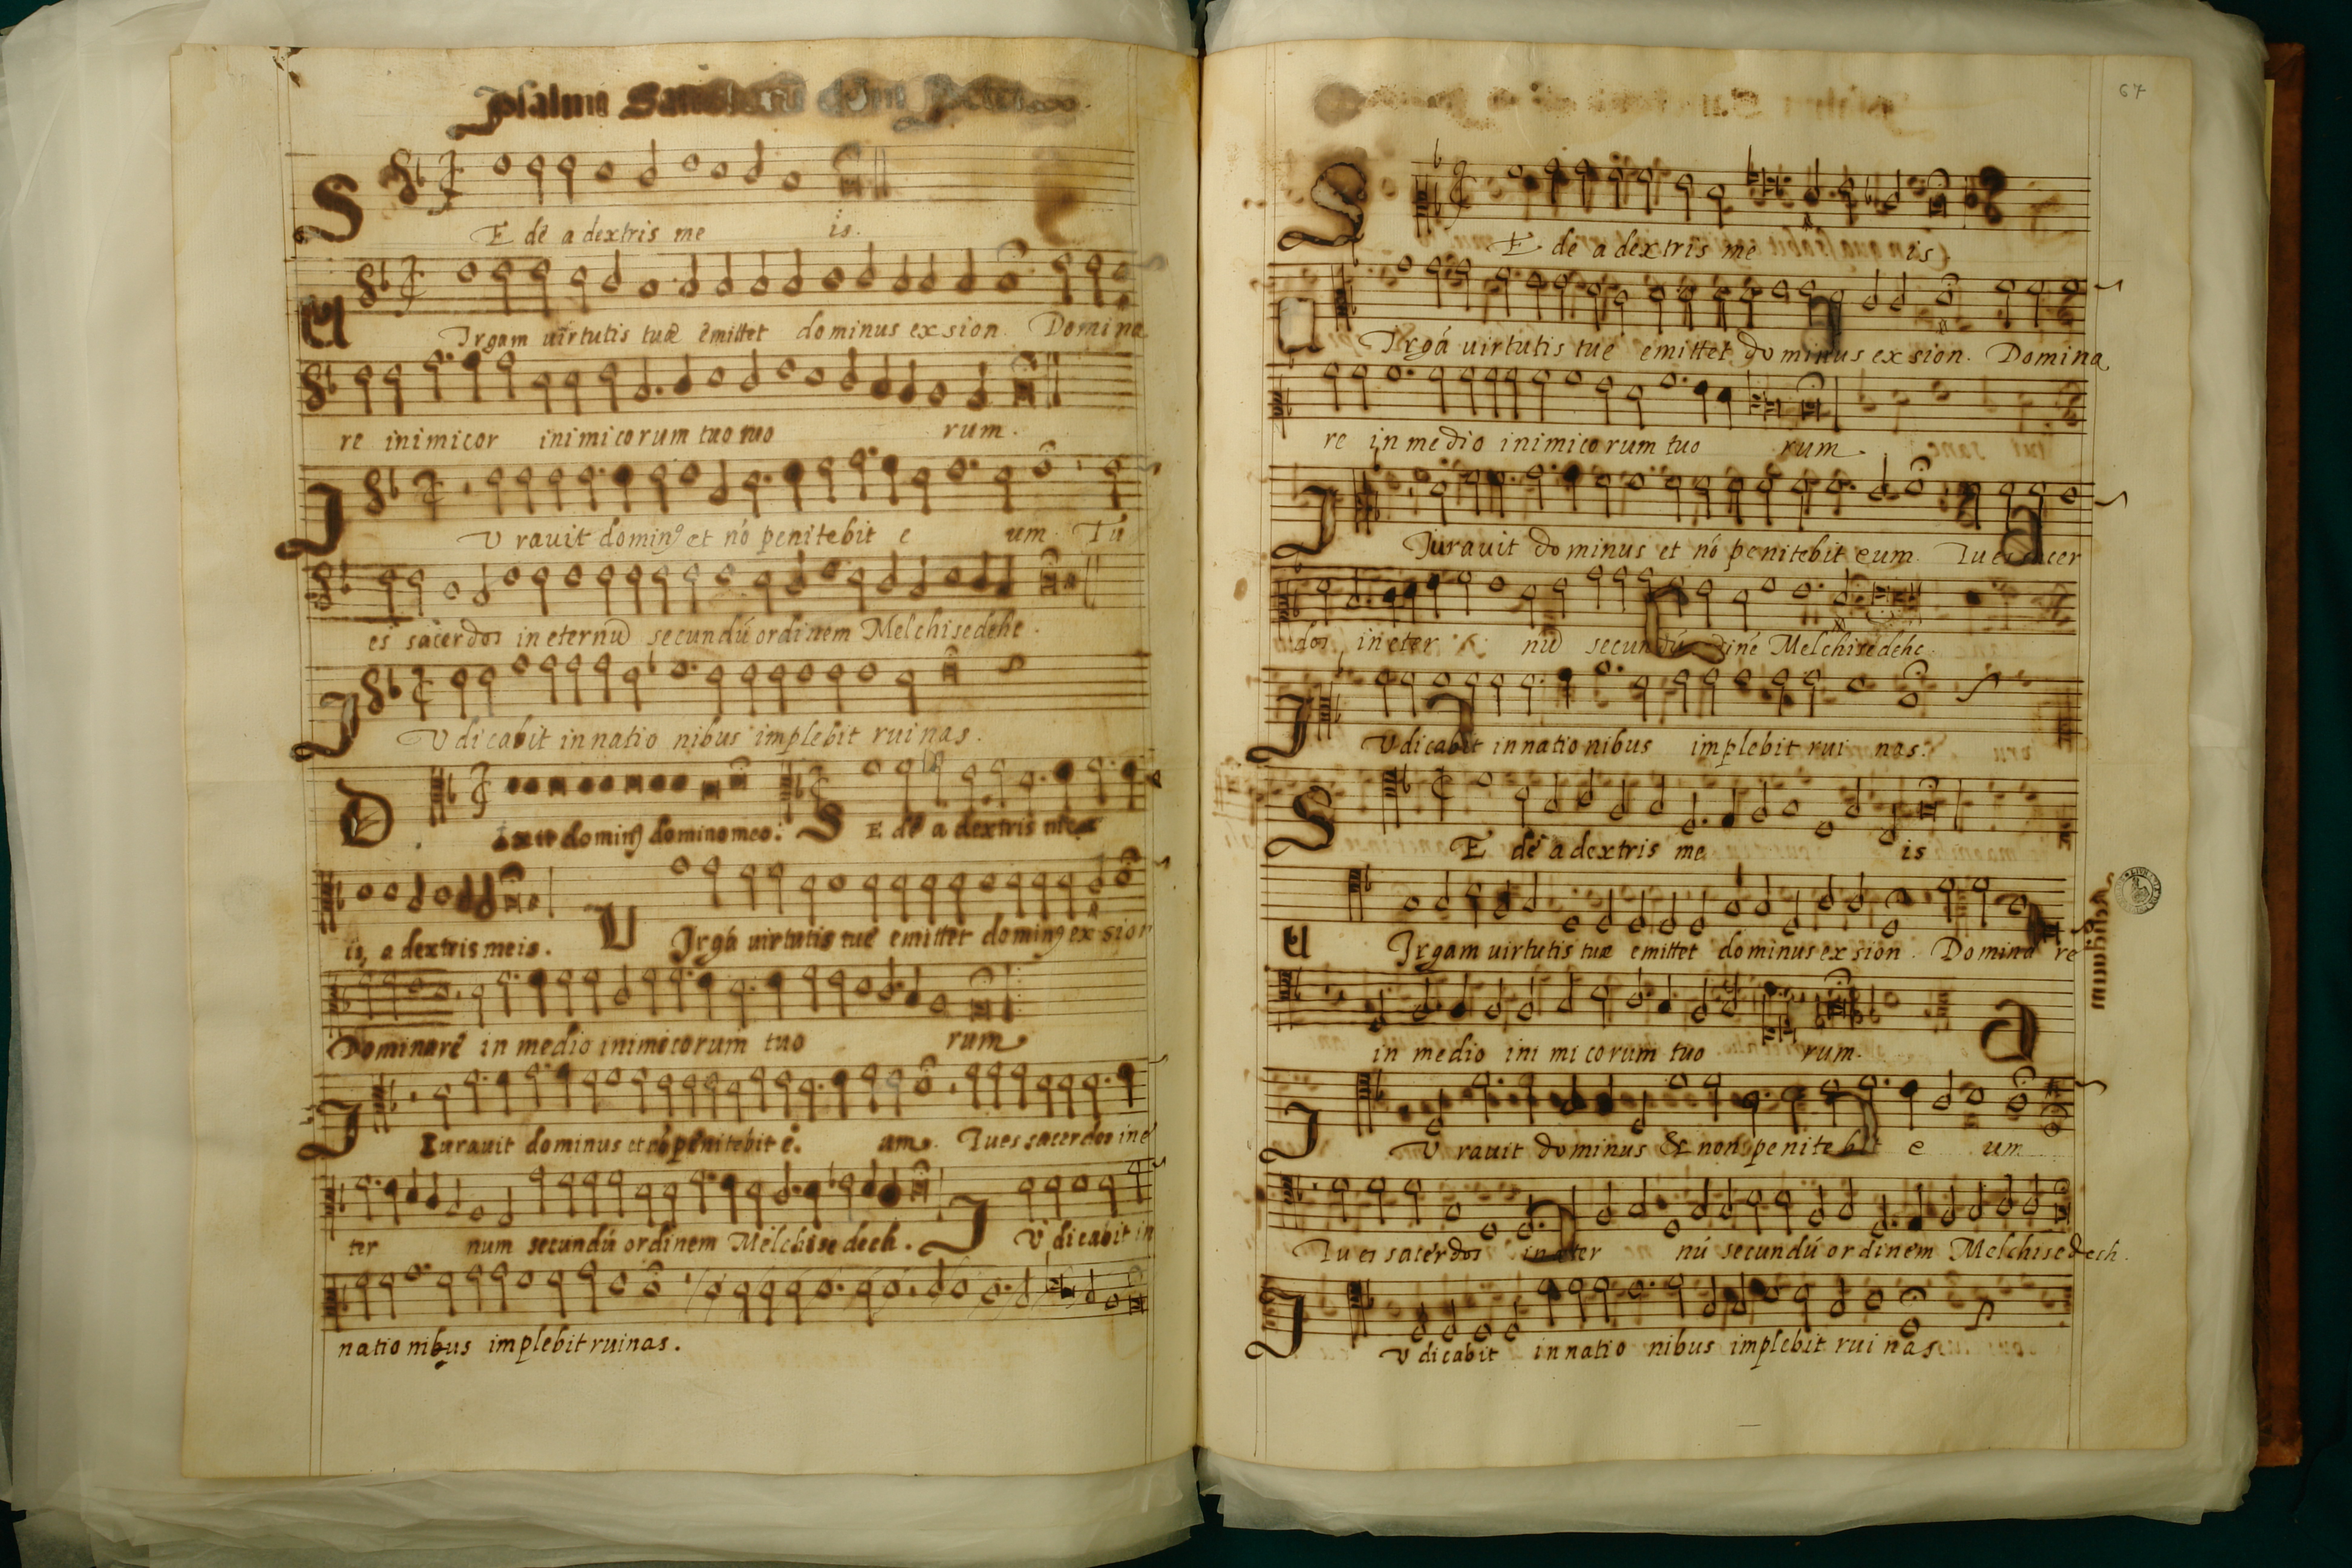 Psalmi
S E dē a dextris me is.
U Irgam uirtutis tuæ emittet dominus ex sion. Domina
re inimicor inimicorum tuo tuo rum.
J U rauit dominꝰ et nō penitebit e um. Tu
es sacerdos in eternū secundū ordinem Melchisedehc.
J U dicabit in natio nibus implebit ruinas.
D Ixit dominꝰ domino meo. S E dē a dextris me
is, a dextris meis. U Irgā uirtutis tuē emittet dominꝰ ex sion
Dominarē in medio inimicorum tuo rum
J Iurauit dominus et nō penitebit e. um. Tu es sacerdos in e
ter num secundū ordinem Melchisedech. J U dicabit in
natio nibus implebit ruinas.
67
S E dē a dextris me is
U Irgā uirtutis tuē emittet dominus ex sion. Domina
re in medio inimico rum tuo rum.
J Jurauit dominus et nō penitebit eum. Tu es sacer
dos in eter nū secundū Melchisedehc.
J U dicabit in natio nibus implebit rui nas.
S E dē a dextris me is
U Irgam uirtutis tuæ emittet dominus ex sion. Domina re
in medio ini mi corum tuo rum.
J U rauit dominus & non penitebit e um
Tu es sacerdos in eter nū secundū ordinem Melchisedech.
J U dicabit in natio nibus implebit rui nas